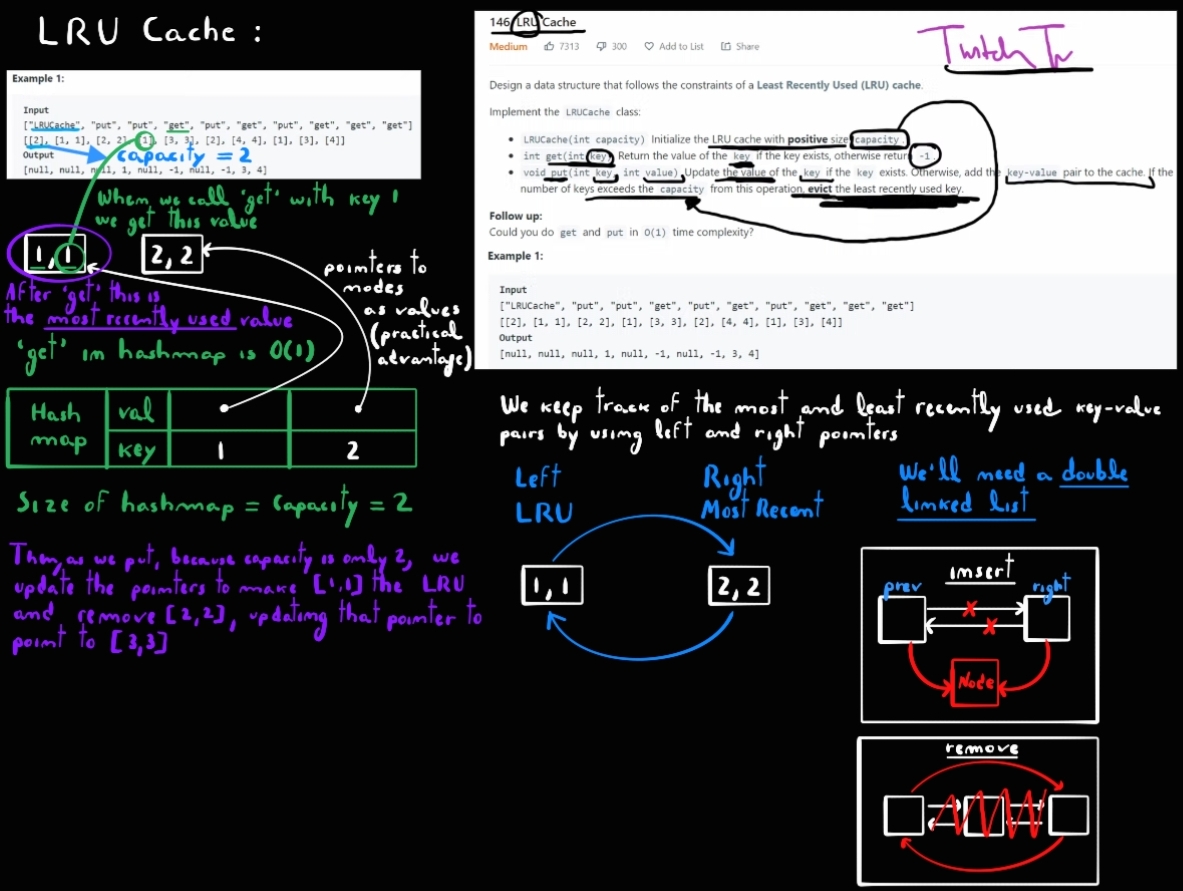 LRU Cache :
Example 1:
Input
["LRUCache", "put", "put", "get", "put", "get", "put", "get", "get", "get"]
[[2], [1, 1], [2, 2], [1], [3, 3], [2], [4, 4], [1], [3], [4]]
Output
capacity = 2
[null, null, null, 1, null, -1, null, -1, 3, 4]
When we call 'get' with key 1
we get this value
1, 1
2, 2
After 'get' this is
the most recently used value
'get' in hashmap is O(1)
pointers to
nodes
as values
(practical
advantage)
Hash
map
val
key
1
2
Size of hashmap = Capacity = 2
Then, as we put, because capacity is only 2, we
update the pointers to make [1,1] the LRU
and remove [2,2], updating that pointer to
point to [3,3]
146 LRU Cache
Medium 7313 300 Add to List Share
Twitch Tv
Design a data structure that follows the constraints of a Least Recently Used (LRU) cache.
Implement the LRUCache class:
• LRUCache(int capacity) Initialize the LRU cache with positive size capacity.
• int get(int key) Return the value of the key if the key exists, otherwise return -1.
• void put(int key, int value) Update the value of the key if the key exists. Otherwise, add the key-value pair to the cache. If the
number of keys exceeds the capacity from this operation, evict the least recently used key.
Follow up:
Could you do get and put in O(1) time complexity?
Example 1:
Input
["LRUCache", "put", "put", "get", "put", "get", "put", "get", "get", "get"]
[[2], [1, 1], [2, 2], [1], [3, 3], [2], [4, 4], [1], [3], [4]]
Output
[null, null, null, 1, null, -1, null, -1, 3, 4]
We keep track of the most and least recently used key-value
pairs by using left and right pointers
Left
LRU
Right
Most Recent
1, 1
2, 2
We'll need a double
linked list
insert
prev
right
Node
remove